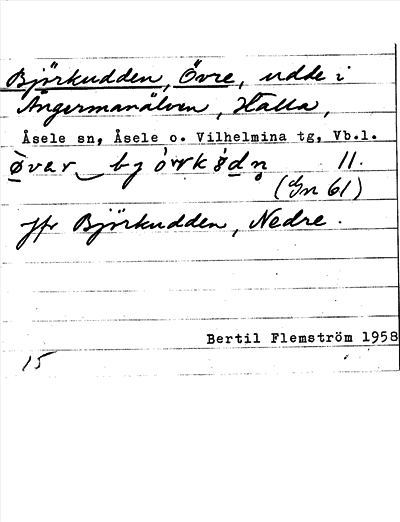 Björkudden, Övre, udde i
Ångermanälven, Hälla,
Åsele sn, Åsele o. Vilhelmina tg, Vb.l.
II.
jfr Björkudden, Nedre.
Bertil Flemström 1958
15